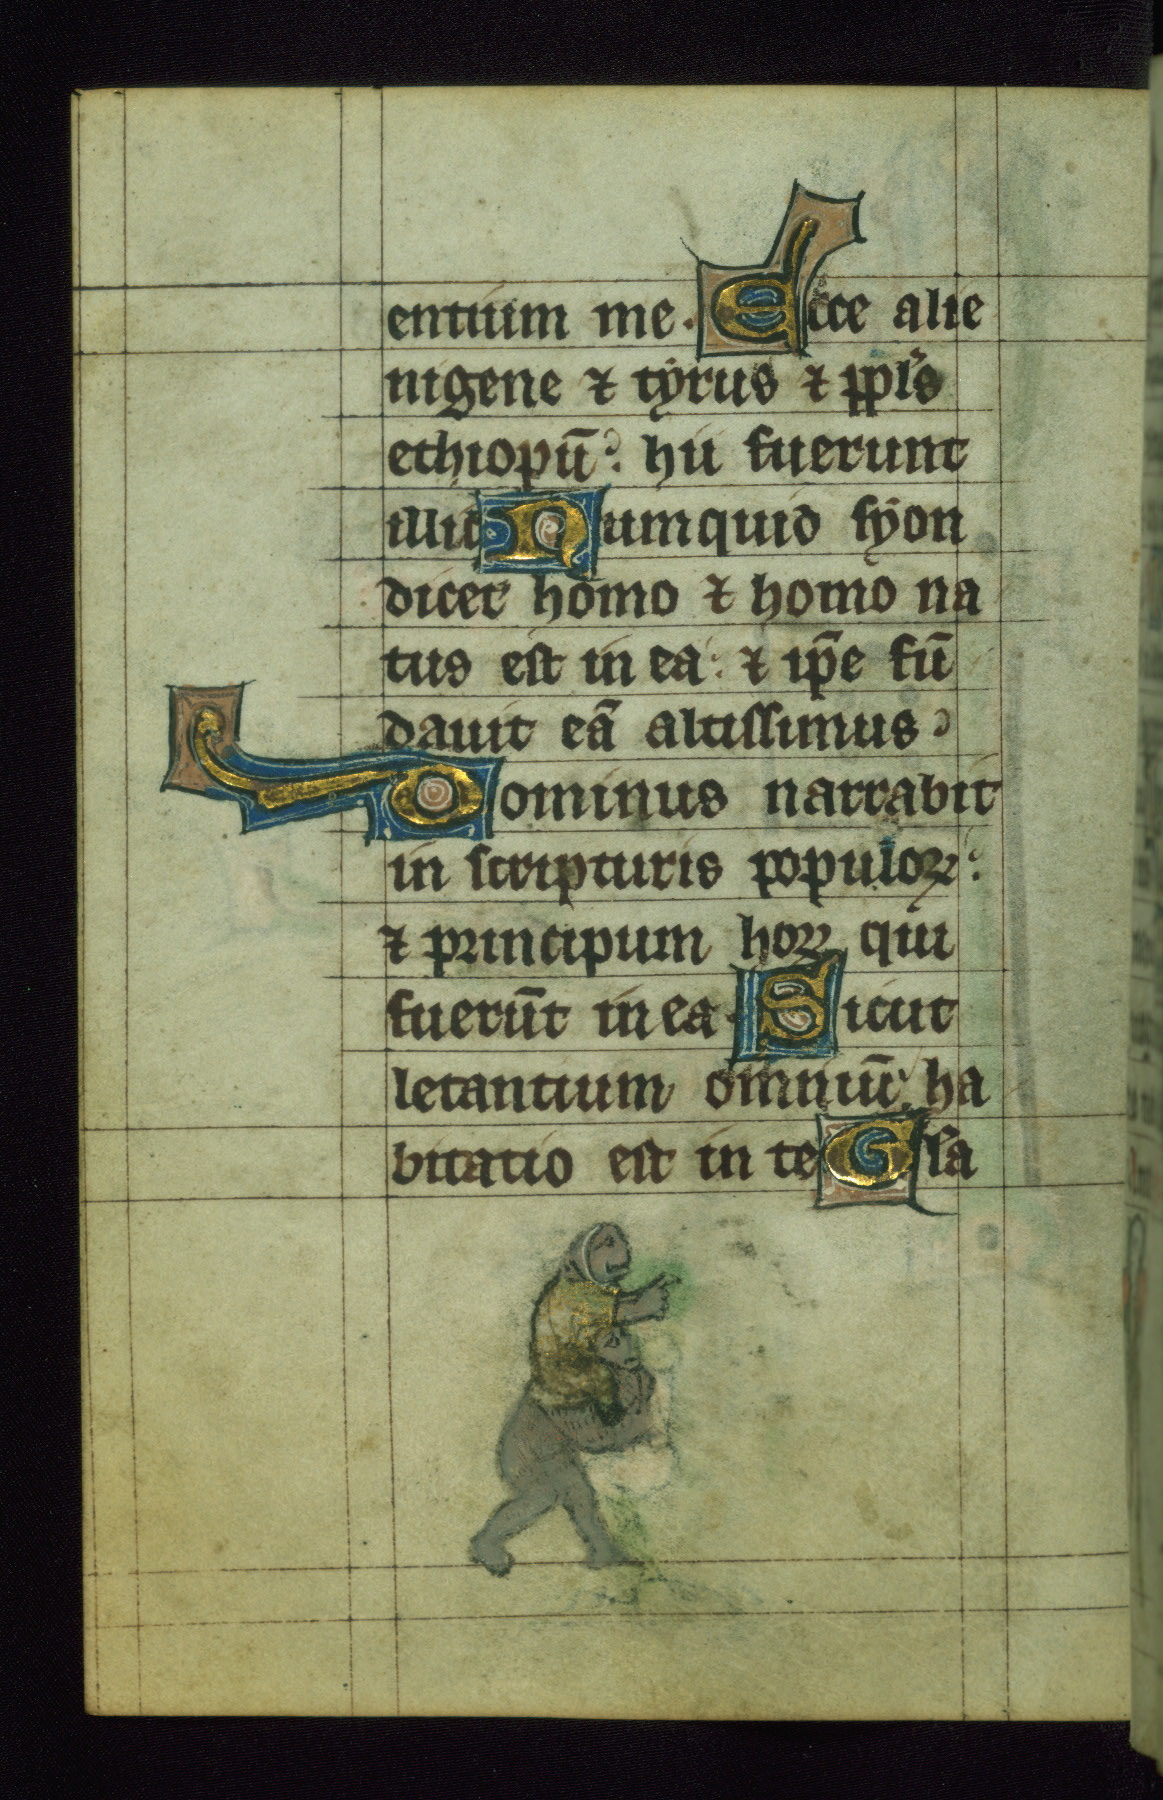 entium me. Ecce alie
nigene ⁊ tyrus ⁊ ppl's
ethiopū: hii fuerunt
illic Numquid syon
dicet homo ⁊ homo na
tus est in ea: ⁊ ip̄e fū
davit eā altissimus
Dominus narrabit
in scripturis populoꝝ:
⁊ principum hoꝝ qui
fuerūt in ea. Sicut
letantium omniū ha
bitatio est in te Gl'a